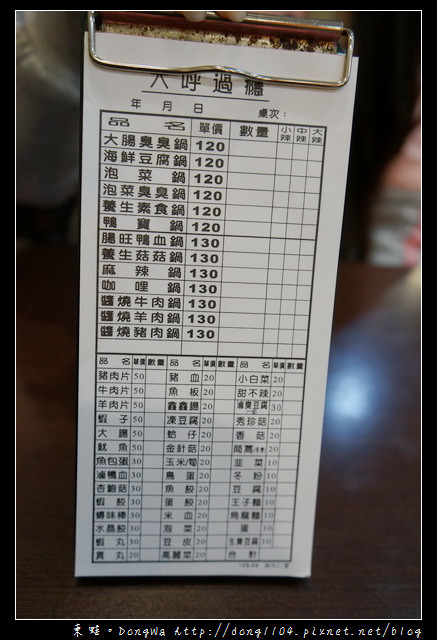 大呼過癮
年 月 日 桌次：
品名 單價 數量 小辣 中辣 大辣
大腸臭臭鍋 120
海鮮豆腐鍋 120
泡菜鍋 120
泡菜臭臭鍋 120
養生素食鍋 120
鴨寶鍋 120
腸旺鴨血鍋 130
養生菇菇鍋 130
麻辣鍋 130
咖哩鍋 130
醬燒牛肉鍋 130
醬燒羊肉鍋 130
醬燒豬肉鍋 130
品名 單價 數量 品名 單價 數量 品名 單價 數量
豬肉片 50 豬血 20 小白菜 20
牛肉片 50 魚板 20 甜不辣 20
羊肉片 50 鑫鑫腸 20 滷臭豆腐 30
蝦子 50 凍豆腐 20 秀珍菇 20
大腸 50 蛤仔 20 香菇 20
魷魚 50 金針菇 20 茼萵 20
魚包蛋 30 玉米/筍 20 韭菜 10
滷鴨血 30 鳥蛋 20 冬粉 10
杏鮑菇 30 魚餃 20 豆腐 10
蝦餃 30 蛋餃 20 王子麵 10
蟳味棒 30 米血 20 烏龍麵 10
水晶餃 30 泡菜 20 蛋 10
蝦丸 30 豆皮 20 生臭豆腐 10
貢丸 20 高麗菜 20 合計
東蛙。DongWa http://dong1104.pixnet.net/blog